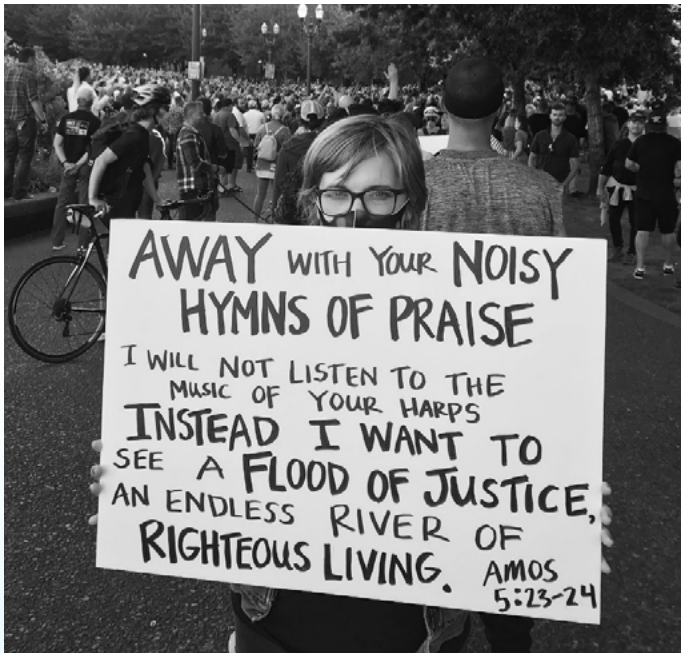 AWAY WITH YOUR NOISY
HYMNS OF PRAISE
I WILL NOT LISTEN TO THE
MUSIC OF YOUR HARPS
INSTEAD I WANT TO
SEE A FLOOD OF JUSTICE,
AN ENDLESS RIVER OF
RIGHTEOUS LIVING. AMOS
5:23-24